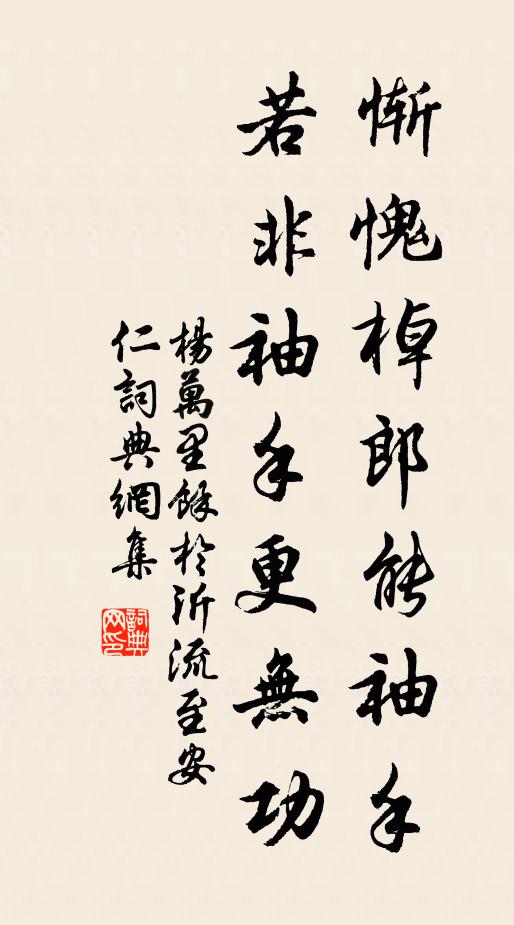 慚愧棹郎能袖手
若非袖手更無功
楊萬里餘於泝流至安
仁詞典網集
詞典
网印